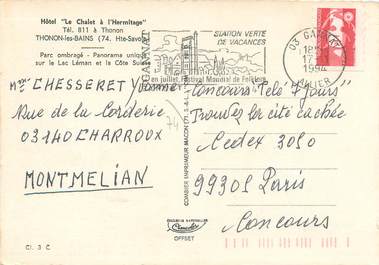 Hôtel "Le Chalet à l'Hermitage"
Tél. 811 à Thonon
THONON-les-BAINS (74. Hte-Savoie)
Parc ombragé - Panorama unique
sur le Lac Léman et la Côte Suisse
GANNAT
STATION VERTE
DE VACANCES
en juillet. Festival Mondial de Folklore
03 GANNAT
1994
ALLIER
Mme CHESSERET Yvonne
Rue de la Corderie
03140 CHARROUX
MONTMELIAN
74
COMBIER IMPRIMEUR MACON
Concours Télé 7 Jours"
Trouvez la cité cachée
Cedex 3050
99301 Paris
Concours
COULEURS NATURELLES
OFFSET
Cl. 3 C